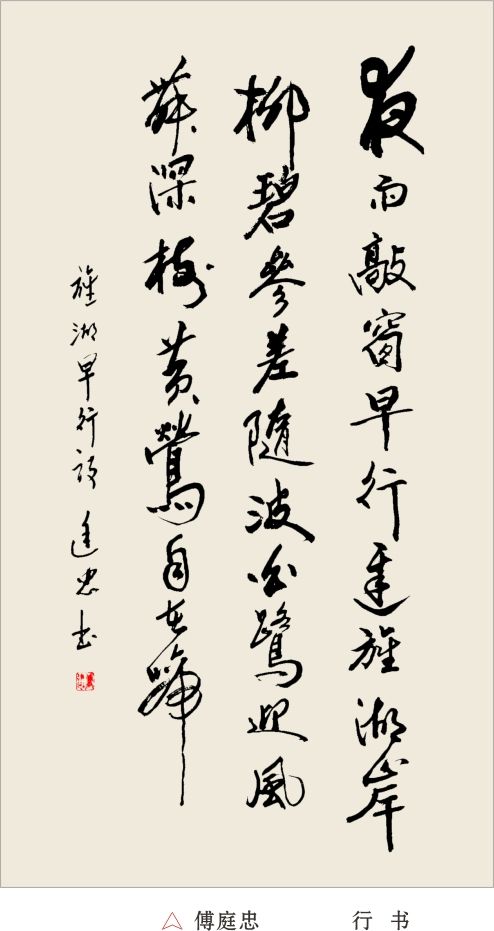 夜雨敲窗早行遲旌湖岸
柳碧參差隨波白鷺迎風
舞深樹黃鶯自在啼
旌湖早行诗 廷忠书
傅庭忠 行书